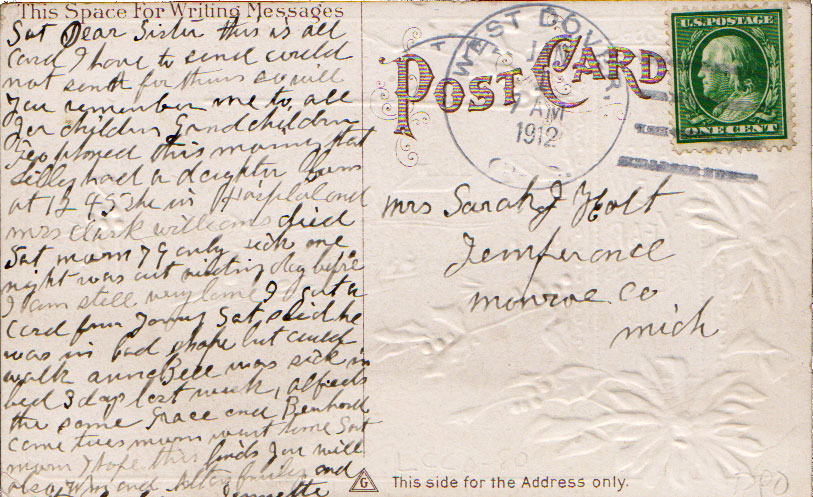 This Space For Writing Messages
Sat Dear Sister this is all
Card I have to send could
not send for thurs so will
you remember me to, all
yer childern Grandchildern
this morning that
Lilly had a daughter born
at 12 45 she in Hospital and
mrs Clark williams died
Sat morn 79 only sick one
night was out visiting day before
I am still very lame I got a
Card from Sat said he
was in bad shape but could
walk anna Bell was sick in
bed 3 days last week, alfreds
the same Grace and Benhard
came tues morn went home Sat
morn I hope this finds you well
also and family and
POST CARD
WEST DOVER
7 AM
1912
U.S. POSTAGE
ONE CENT
mrs Sarah J Holt
Temperance
monroe Co
mich
G
This side for the Address only.